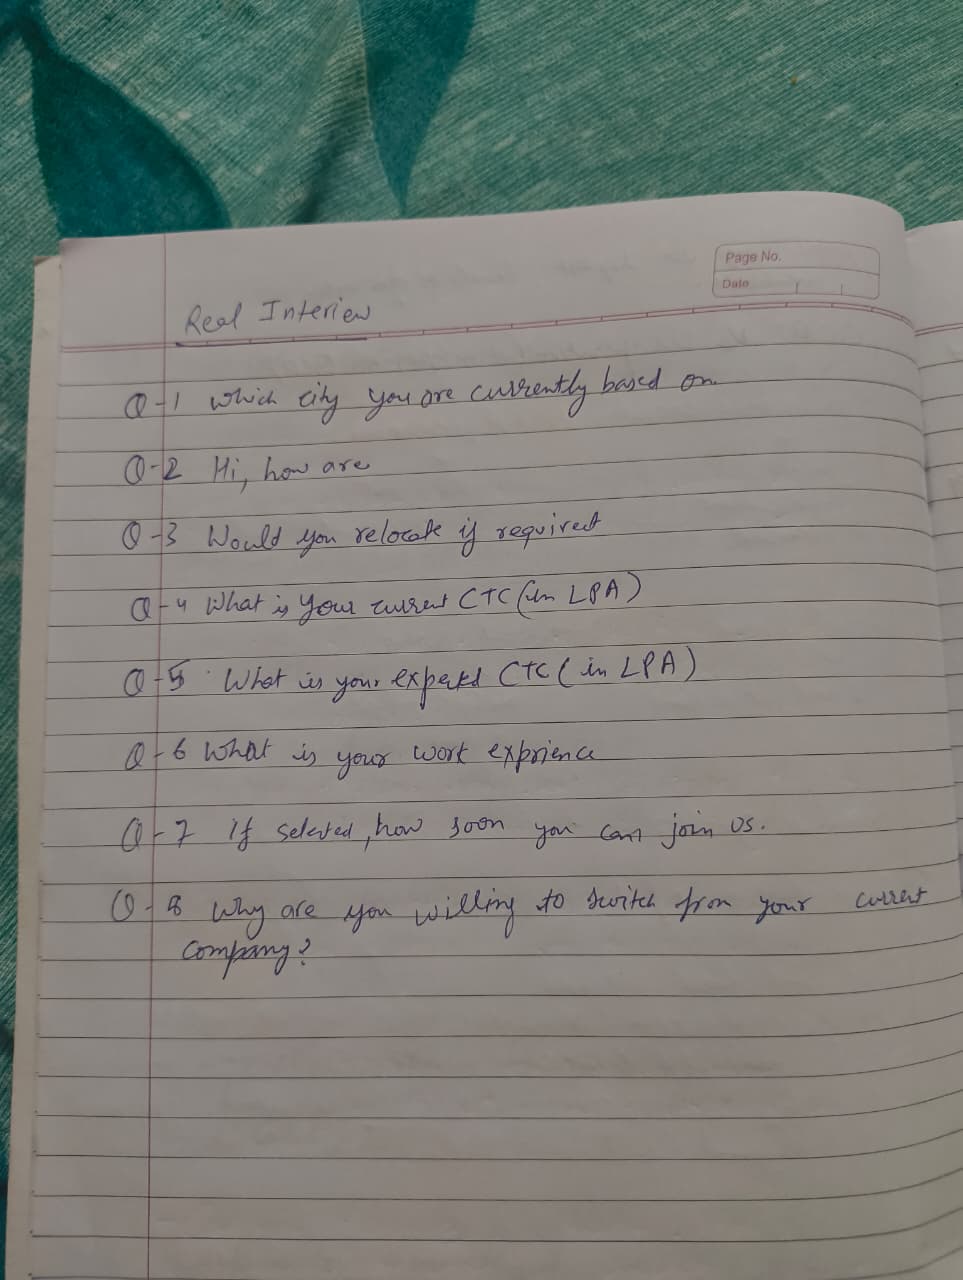 Page No.
Date
Real Interiew
Q-1 which city you are currently based on
Q-2 Hi, how are
Q-3 Would you relocate if required
Q-4 What is your current CTC (in LPA)
Q-5 What is your expected CTC (in LPA)
Q-6 What is your work exprience
Q-7 If selected, how soon you can join us.
Q-8 Why are you willing to switch from your current
company?